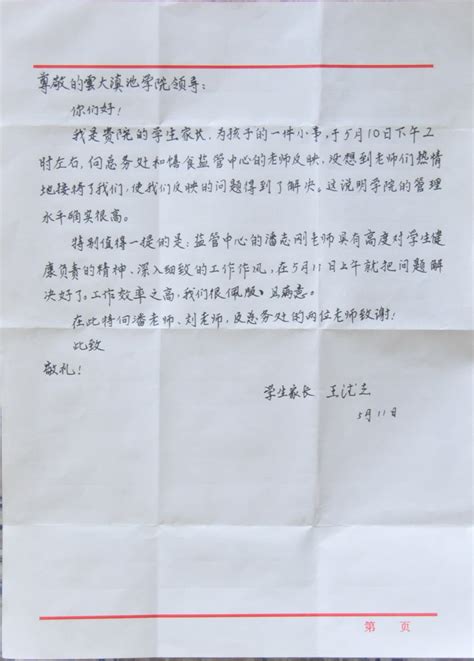 尊敬的雲大滇池学院领导:
你们好!
我是贵院的学生家长,为孩子的一件小事,于5月10日下午2
时左右,向总务处和膳食监管中心的老师反映,没想到老师们热情
地接待了我们,使我们反映的问题得到了解决。这说明学院的管理
水平确实很高。
特别值得一提的是:监管中心的潘志刚老师具有高度对学生健
康负责的精神、深入细致的工作作风,在5月11日上午就把问题解
决好了。工作效率之高,我们很佩服、且满意。
在此特向潘老师、刘老师,及总务处的两位老师致谢!
此致
敬礼!
学生家长 王
5月11日
第 页